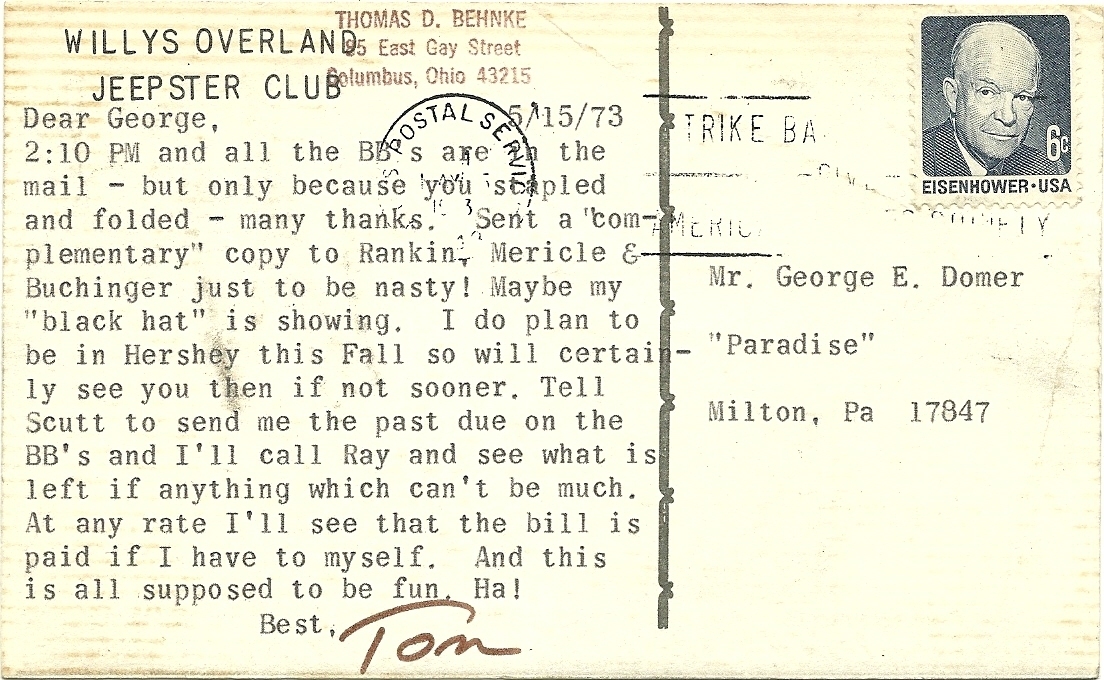 THOMAS D. BEHNKE
95 East Gay Street
Columbus, Ohio 43215
WILLYS OVERLAND
JEEPSTER CLUB
Dear George, 5/15/73
2:10 PM and all the BB's are in the
mail - but only because you stapled
and folded - many thanks. Sent a "com-
plementary" copy to Rankin, Mericle &
Buchinger just to be nasty! Maybe my
"black hat" is showing. I do plan to
be in Hershey this Fall so will certain-
ly see you then if not sooner. Tell
Scutt to send me the past due on the
BB's and I'll call Ray and see what is
left if anything which can't be much.
At any rate I'll see that the bill is
paid if I have to myself. And this
is all supposed to be fun. Ha!
Best,
Tom
POSTAL SERVI
TRIKE BA
AMERIC
6c
EISENHOWER·USA
Mr. George E. Domer
"Paradise"
Milton, Pa 17847